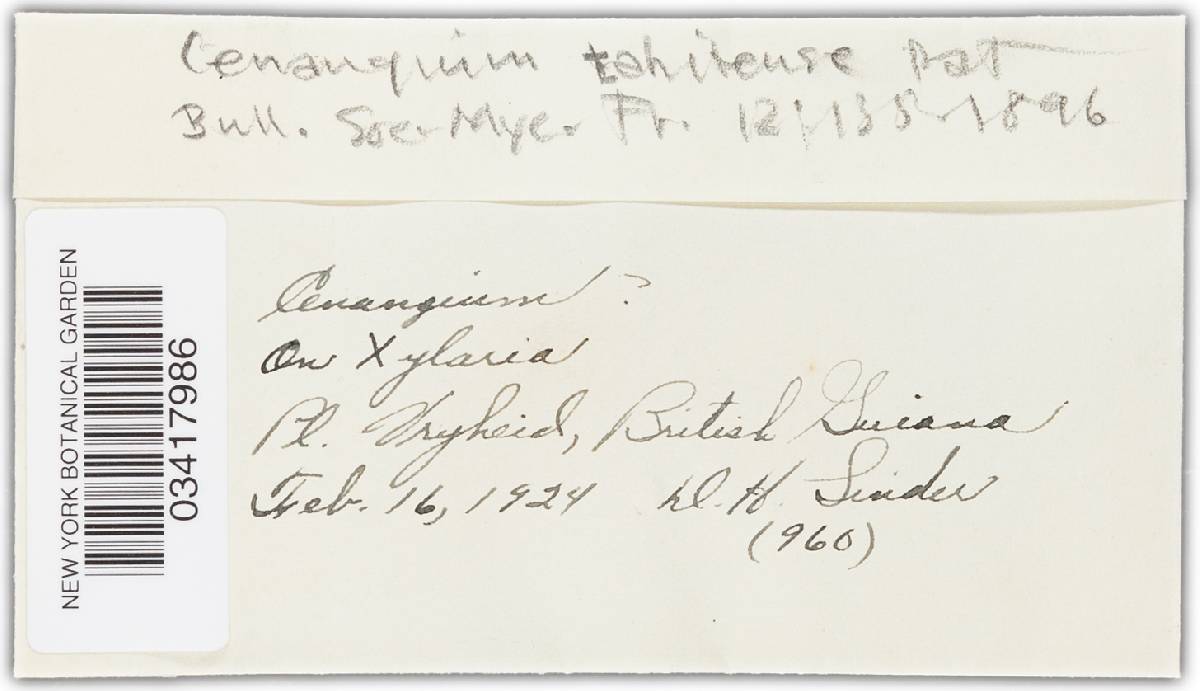 Cenangium tahitense Pat
Bull. Soc. Myc. Fr. 12/135-1896
Cenangium ?
On Xylaria
Pl. Vryheid, British Guiana
Feb. 16, 1924 D. H. Linder
(960)
NEW YORK BOTANICAL GARDEN
03417986